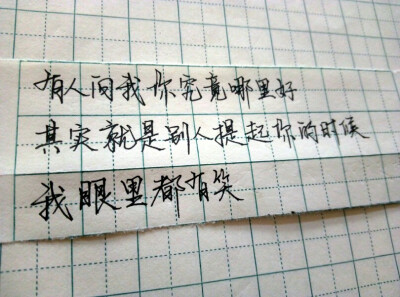 有人问我你究竟哪里好
其实就是别人提起你的时候
我眼里都有笑